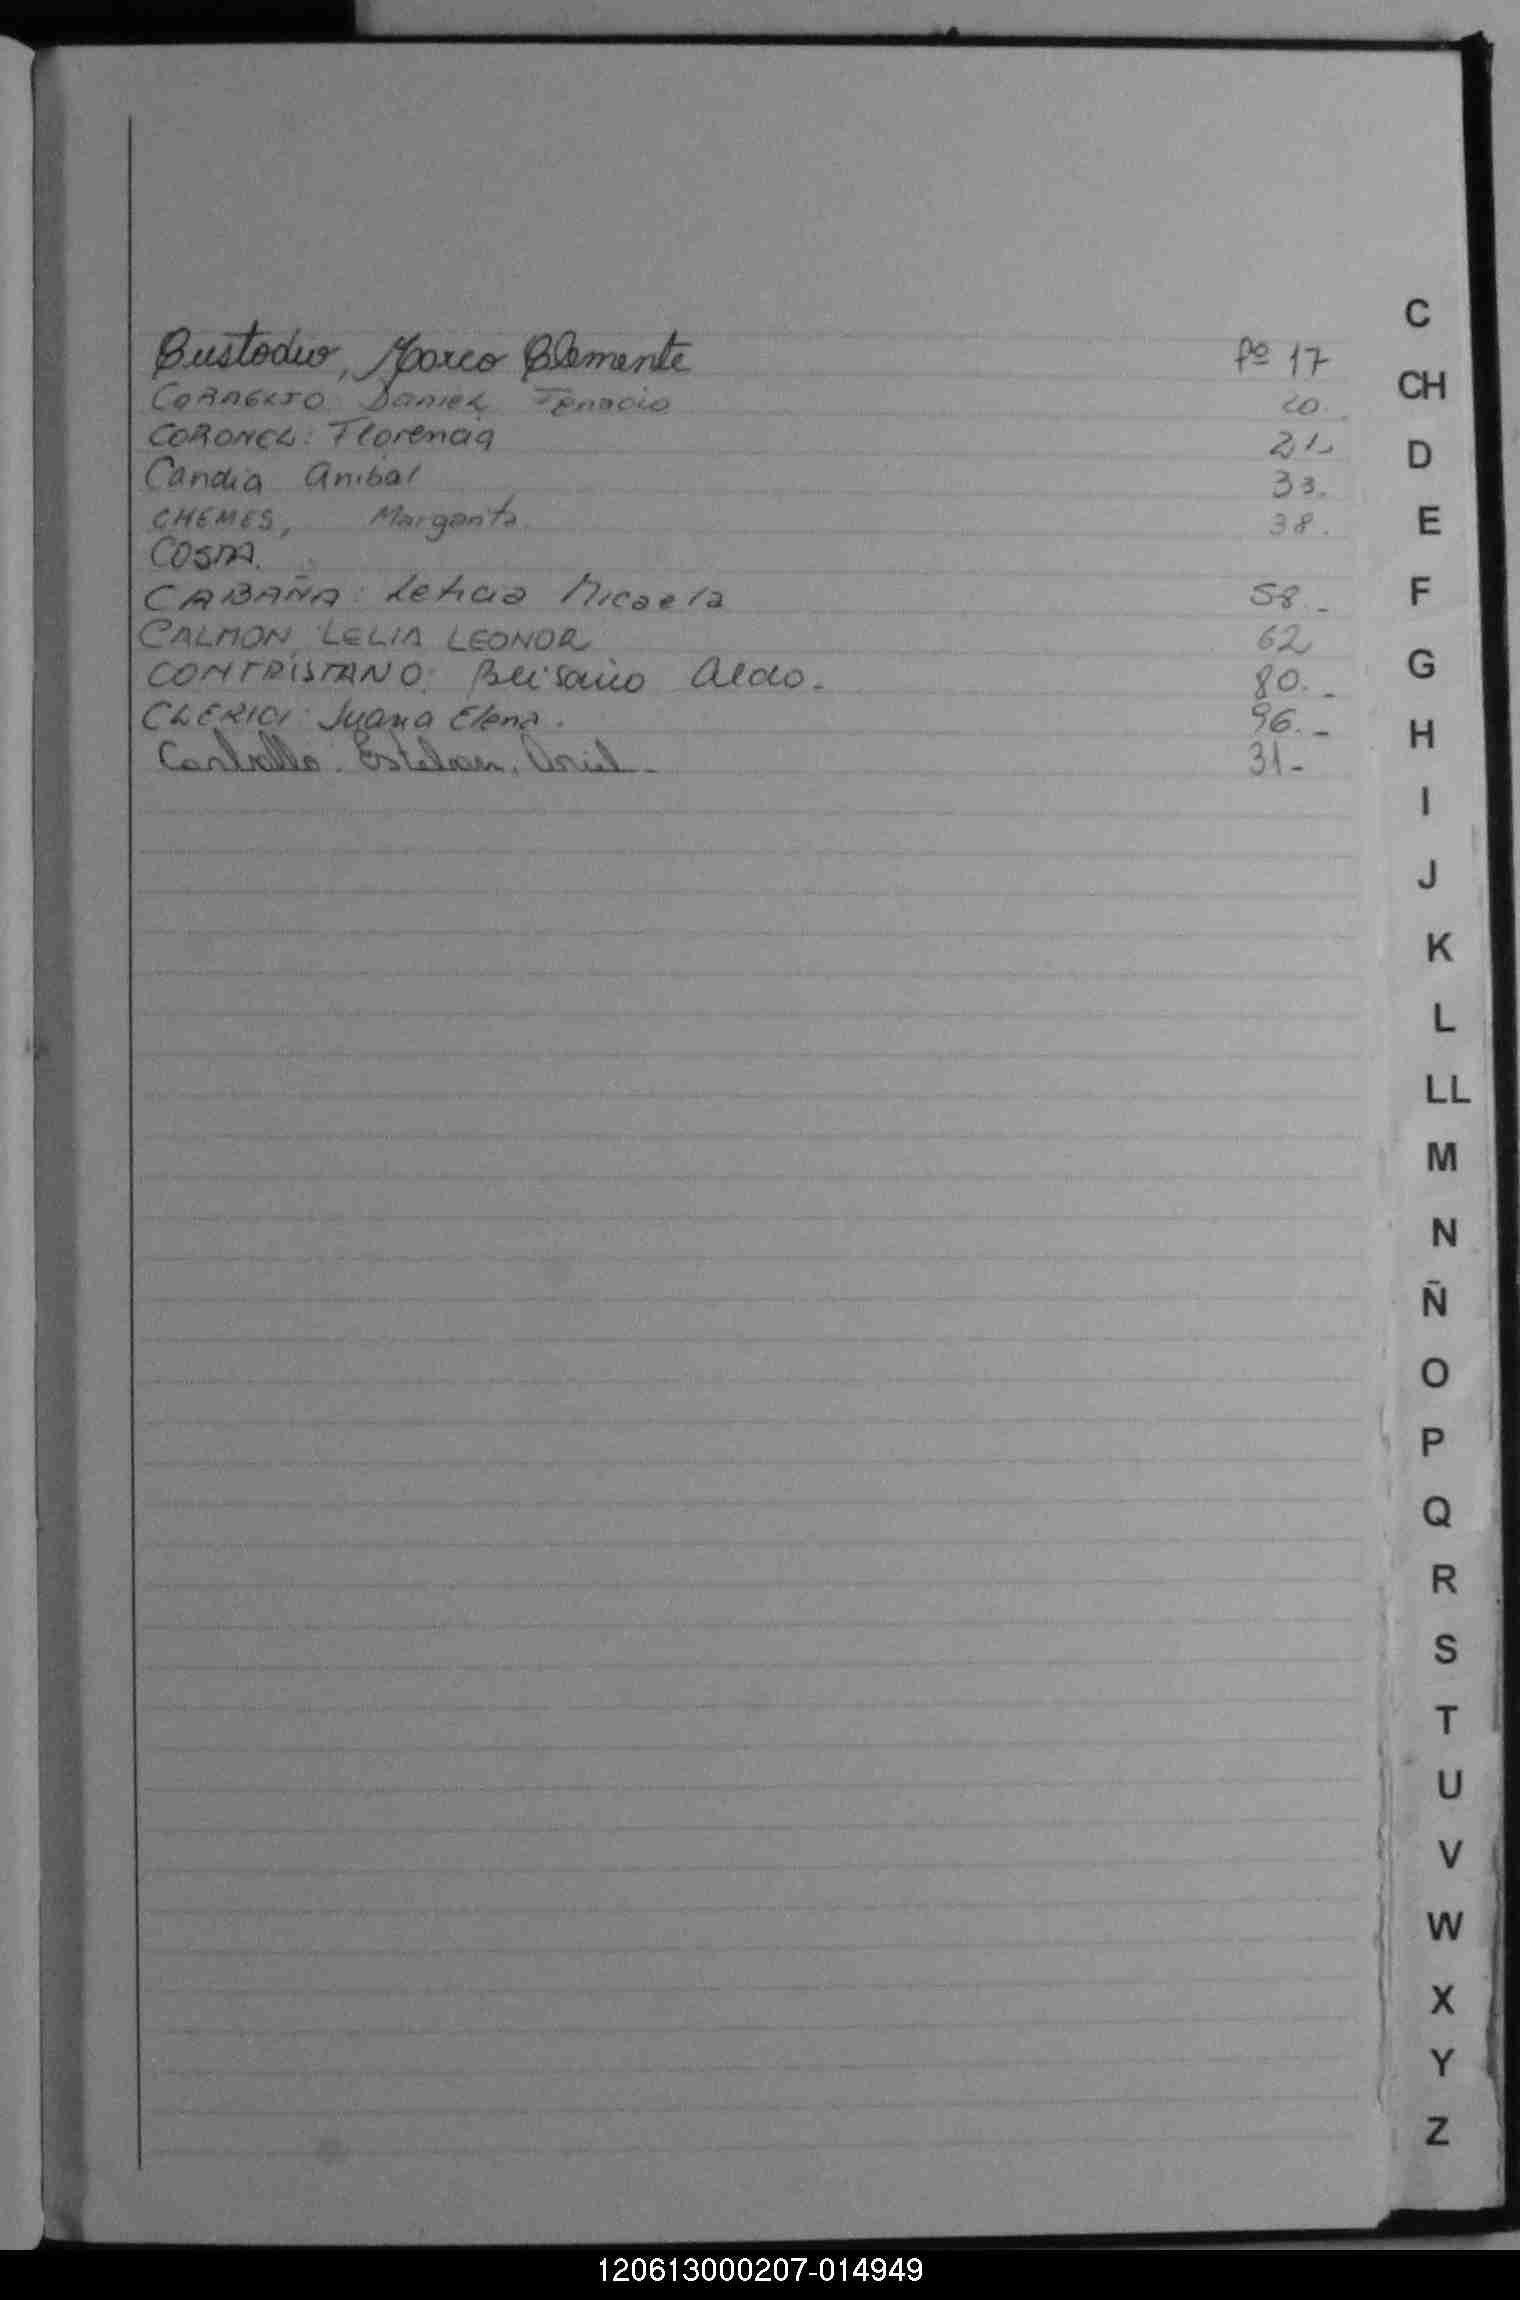 Custodio, Marco Clemente Pº 17
Daniel Ignacio 20.
CORONEL: Florencia 21-
Candia Anibal 33.
CHEMES, Margarita 38.
COSTA.
CABAÑA: Leticia Micaela 58.-
CALMON, LELIA LEONOR 62
CONTRISTANO: Belisario Aldo. 80.-
CLERICI: Juana Elena. 96.-
Esteban, Ariel- 31-
C
CH
D
E
F
G
H
I
J
K
L
LL
M
N
Ñ
O
P
Q
R
S
T
U
V
W
X
Y
Z
120613000207-014949